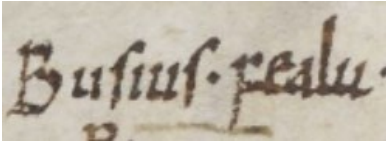 Busius· fealu·